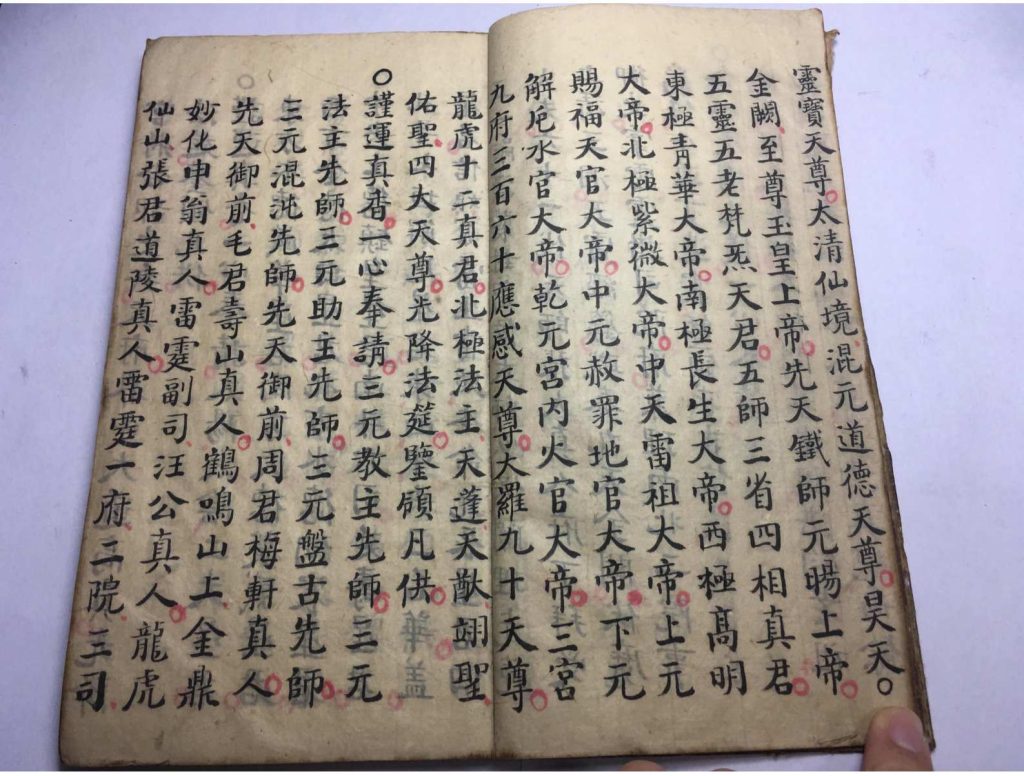 靈寶天尊太清仙境混元道德天尊昊天
金闕至尊玉皇上帝先天鐵師元暘上帝
五靈五老梵炁天君五師三省四相真君
東極青華大帝南極長生大帝西極髙明
大帝北極紫微大帝中天雷祖大帝上元
賜福天官大帝中元赦罪地官大帝下元
解厄水官大帝乾元宮內火官大帝三宮
九府三百六十應感天尊大羅九十天尊
龍虎十二真君北極法主天蓬天猷翊聖
佑聖四大天尊光降法筵鑒領凡供
○謹運真香一心奉請三元教主先師三元
法主先師三元助主先師三元盤古先師
三元混沌先師先天御前周君梅軒真人
先天御前毛君壽山真人鶴鳴山上金鼎
妙化申翁真人雷霆副司汪公真人龍虎
仙山張君道陵真人雷霆一府二院三司